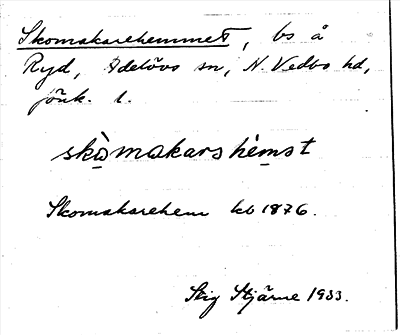 Skomakarehemmet, bs å
Ryd, Adelövs sn, N. Vedbo hd,
Jönk. l.
skò̱makarshèm̱st
Skomakarehem kb 1876.
Stig Stjärne 1933.